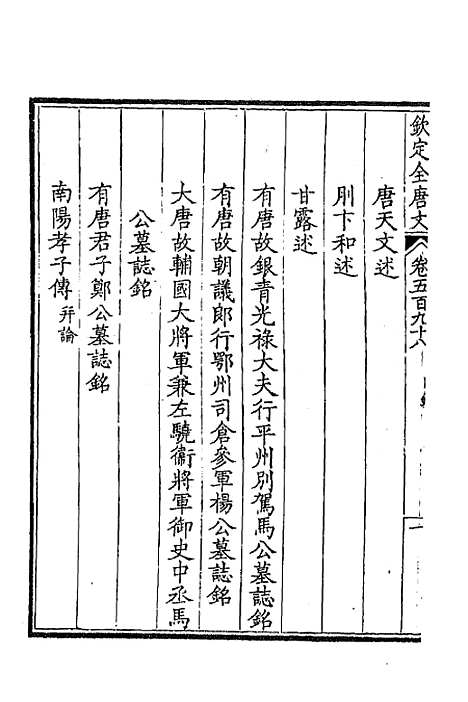 欽定全唐文 卷五百九十八
唐天文述
刖卞和述
甘露述
有唐故銀青光祿大夫行平州別駕馬公墓誌銘
有唐故朝議郎行鄂州司倉參軍楊公墓誌銘
大唐故輔國大將軍兼左驍衞將軍御史中丞馬
公墓誌銘
有唐君子鄭公墓誌銘
南陽孝子傳 幷論